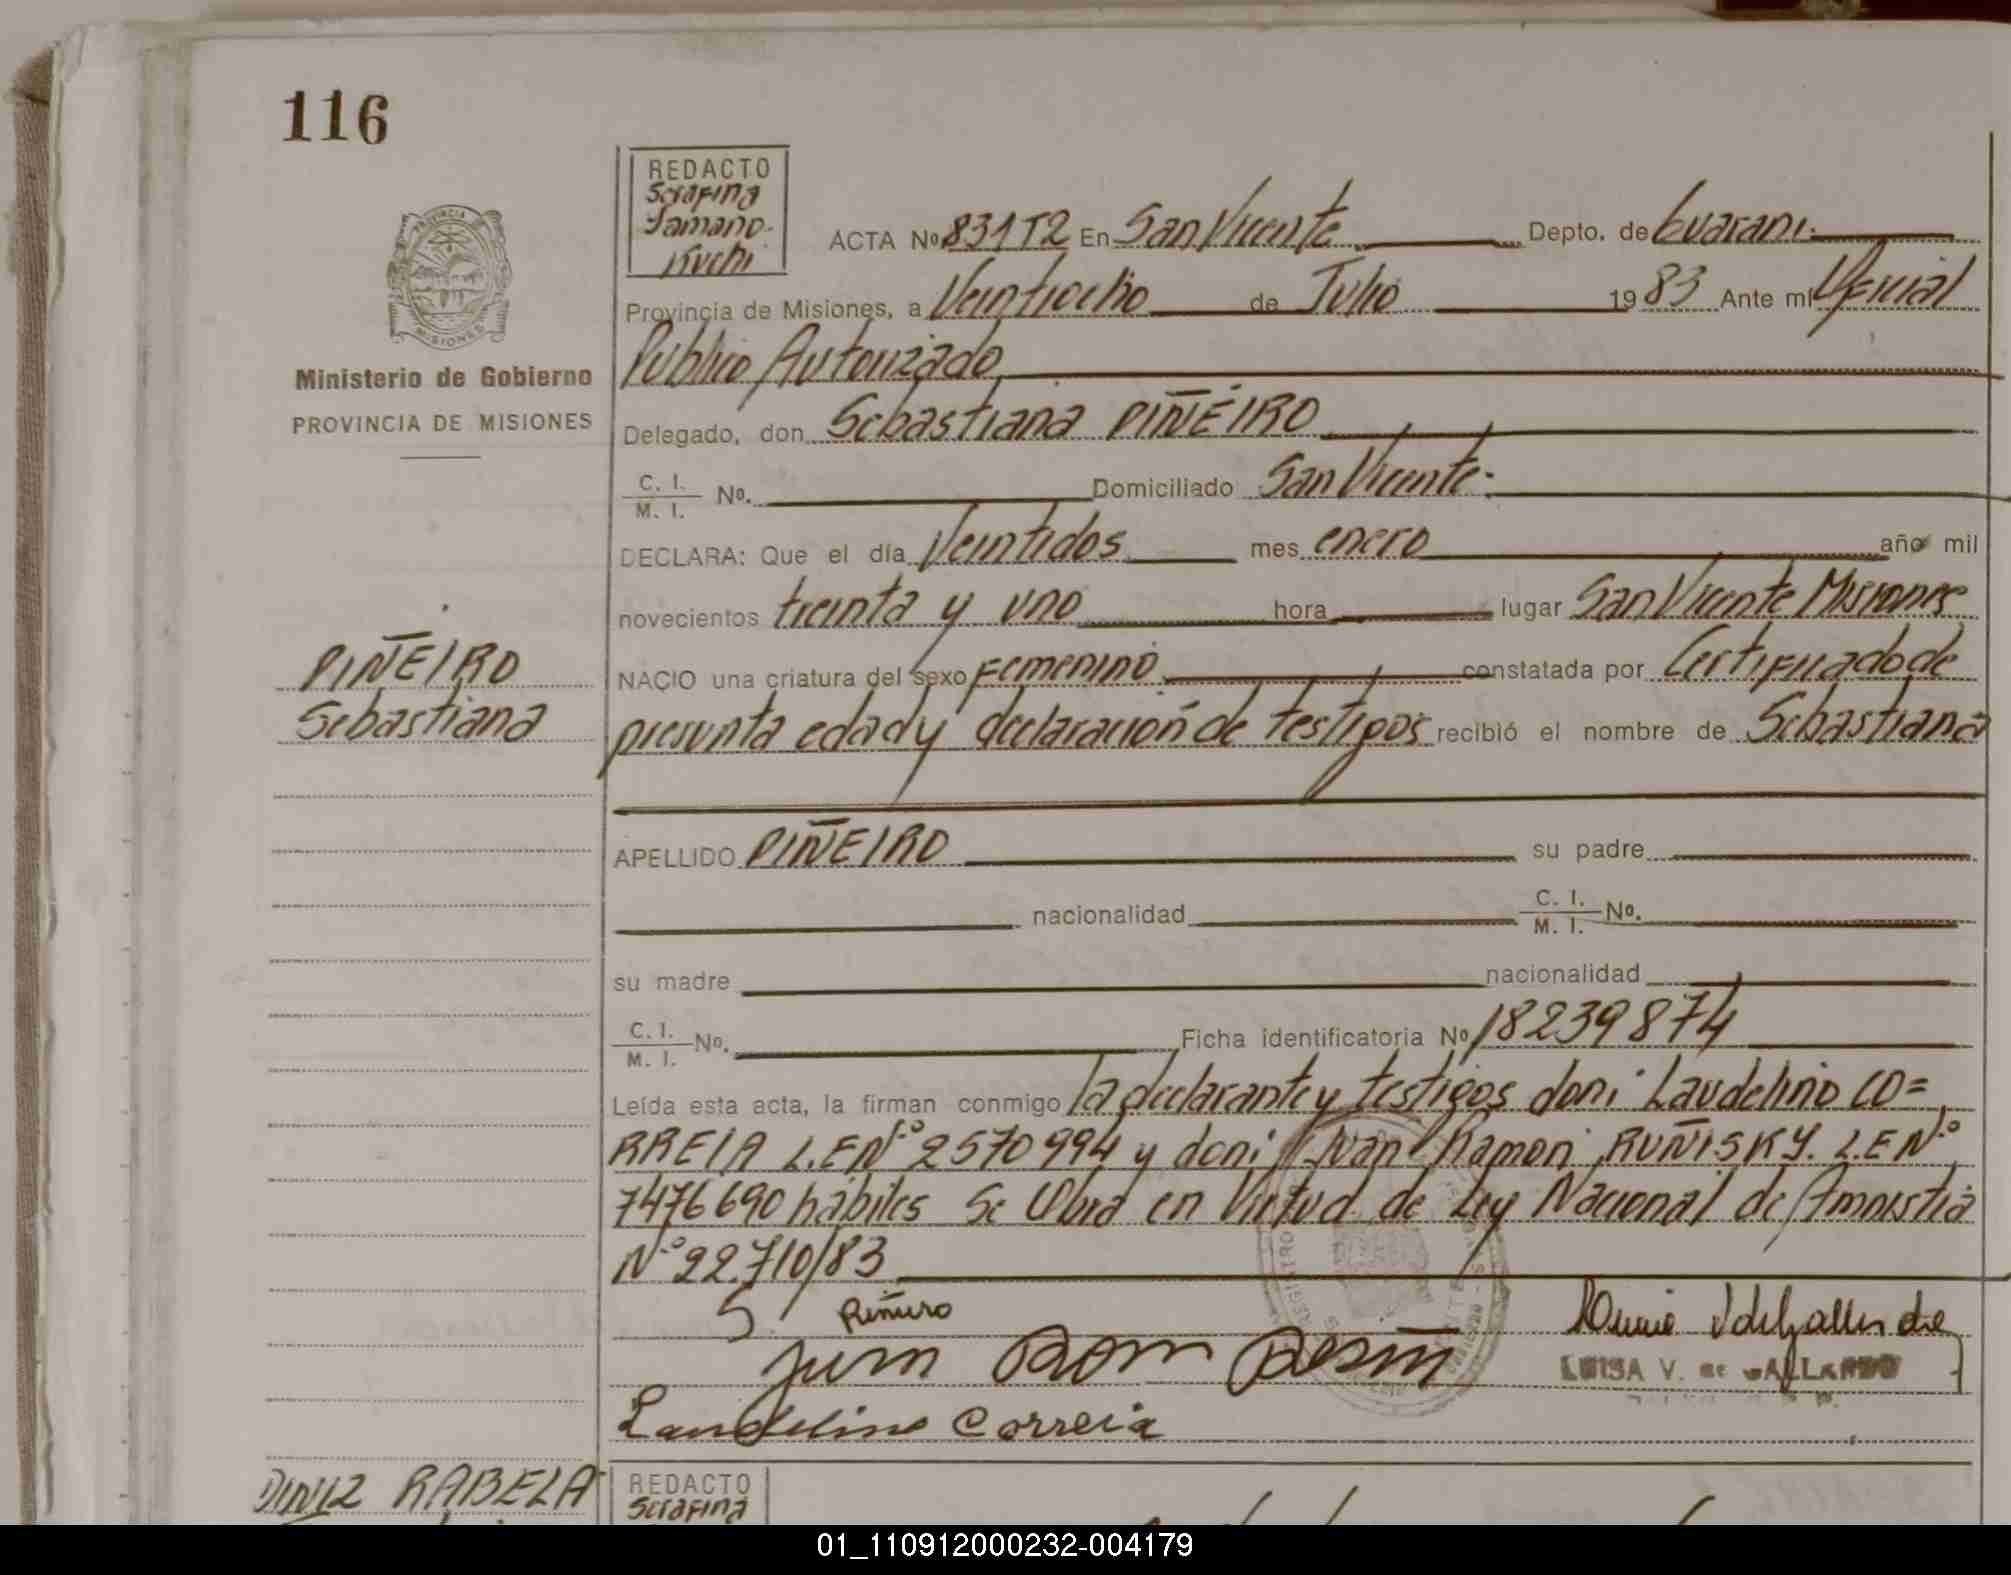 116
REDACTO
Serafina
Tamano-
Kuchi
ACTA No 831T2 En San Vicente Depto. de Guarani.
Provincia de Misiones, a Veintiocho de Julio 1983 Ante mi Oficial
Publico Autorizado
Delegado, don Sebastiana PIÑEIRO
C. I. / M. I. No. Domiciliado San Vicente.
DECLARA: Que el día Veintidos mes enero año mil
novecientos treinta y uno hora lugar San Vicente Misiones
NACIO una criatura del sexo Femenino constatada por Certificado de
presunta edad y declaración de testigos recibió el nombre de Sebastiana
APELLIDO PIÑEIRO su padre
nacionalidad C. I. / M. I. No.
su madre nacionalidad
C. I. / M. I. No. Ficha identificatoria No 18239874
Leída esta acta, la firman conmigo la declarante y testigos don: Laudelino CO=
RREIA L.E Nº 2570994 y don: Juan Ramon RUÑISKY. L.E Nº
7476690 hábiles Se Obra en Virtud de Ley Nacional de Amnistia
Nº 22.710/83
S. Piñeiro
Laudelino Correia
LUISA V. de GALLARDO
PROVINCIA
MISIONES
Ministerio de Gobierno
PROVINCIA DE MISIONES
PIÑEIRO
Sebastiana
DINIZ RABELA
REDACTO
Serafina
01_110912000232-004179